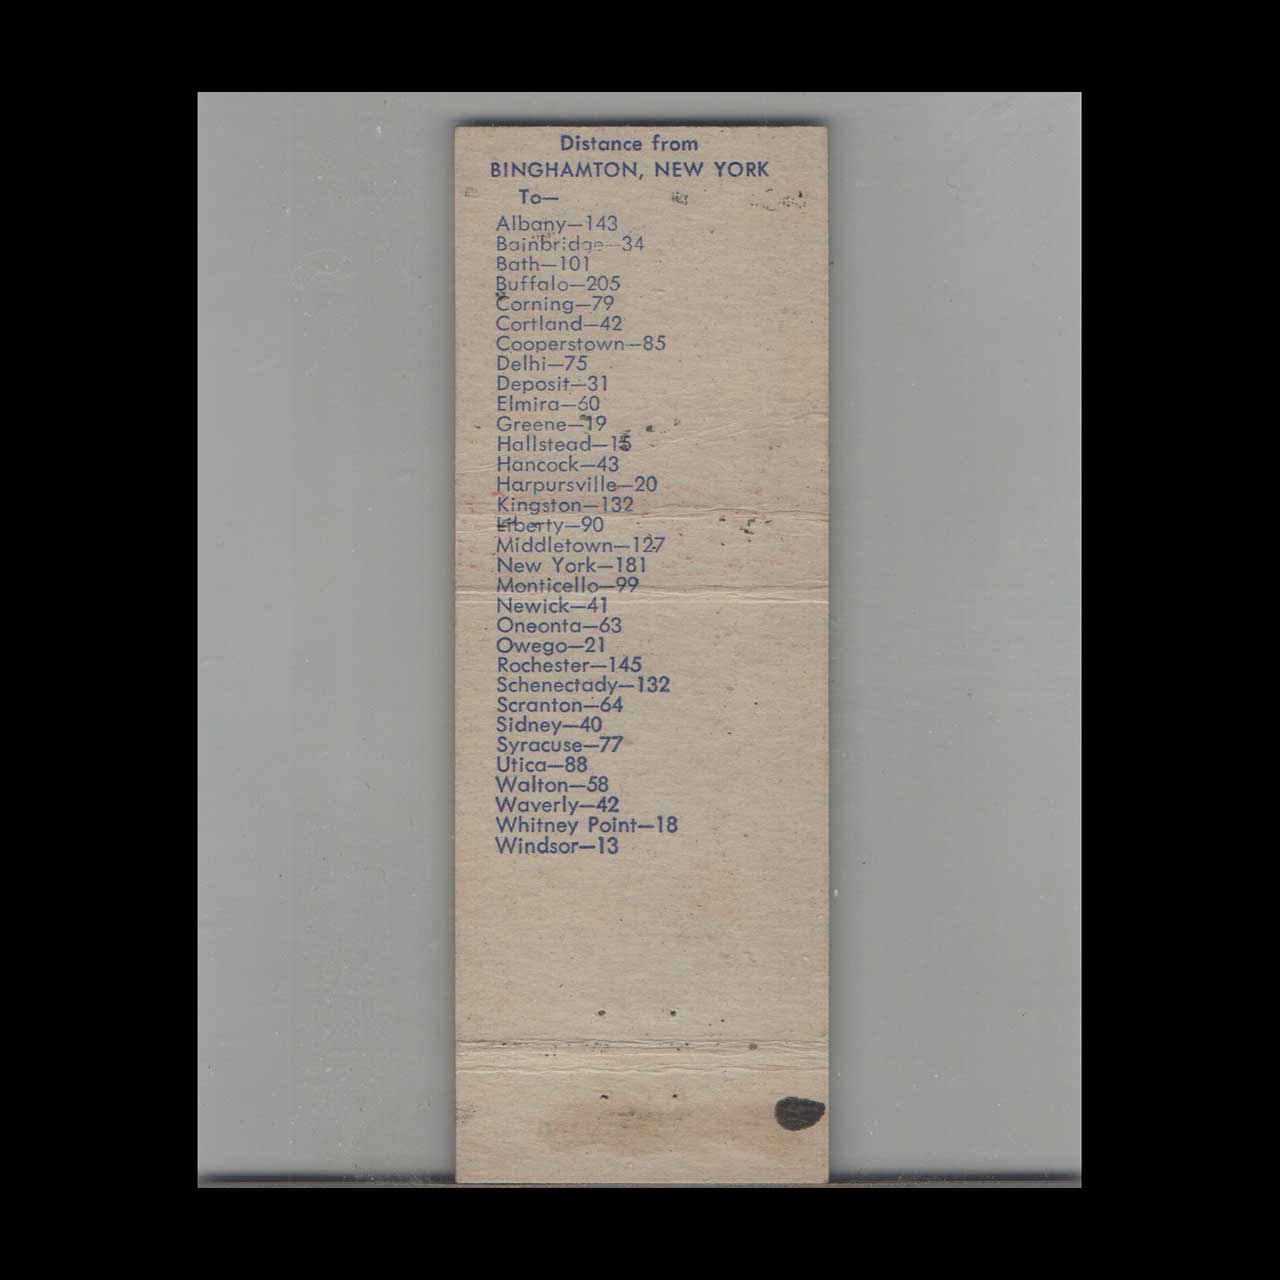 Distance from
BINGHAMTON, NEW YORK
To—
Albany—143
Bainbridge—34
Bath—101
Buffalo—205
Corning—79
Cortland—42
Cooperstown—85
Delhi—75
Deposit—31
Elmira—60
Greene—19
Hallstead—15
Hancock—43
Harpursville—20
Kingston—132
Liberty—90
Middletown—127
New York—181
Monticello—99
Newick—41
Oneonta—63
Owego—21
Rochester—145
Schenectady—132
Scranton—64
Sidney—40
Syracuse—77
Utica—88
Walton—58
Waverly—42
Whitney Point—18
Windsor—13